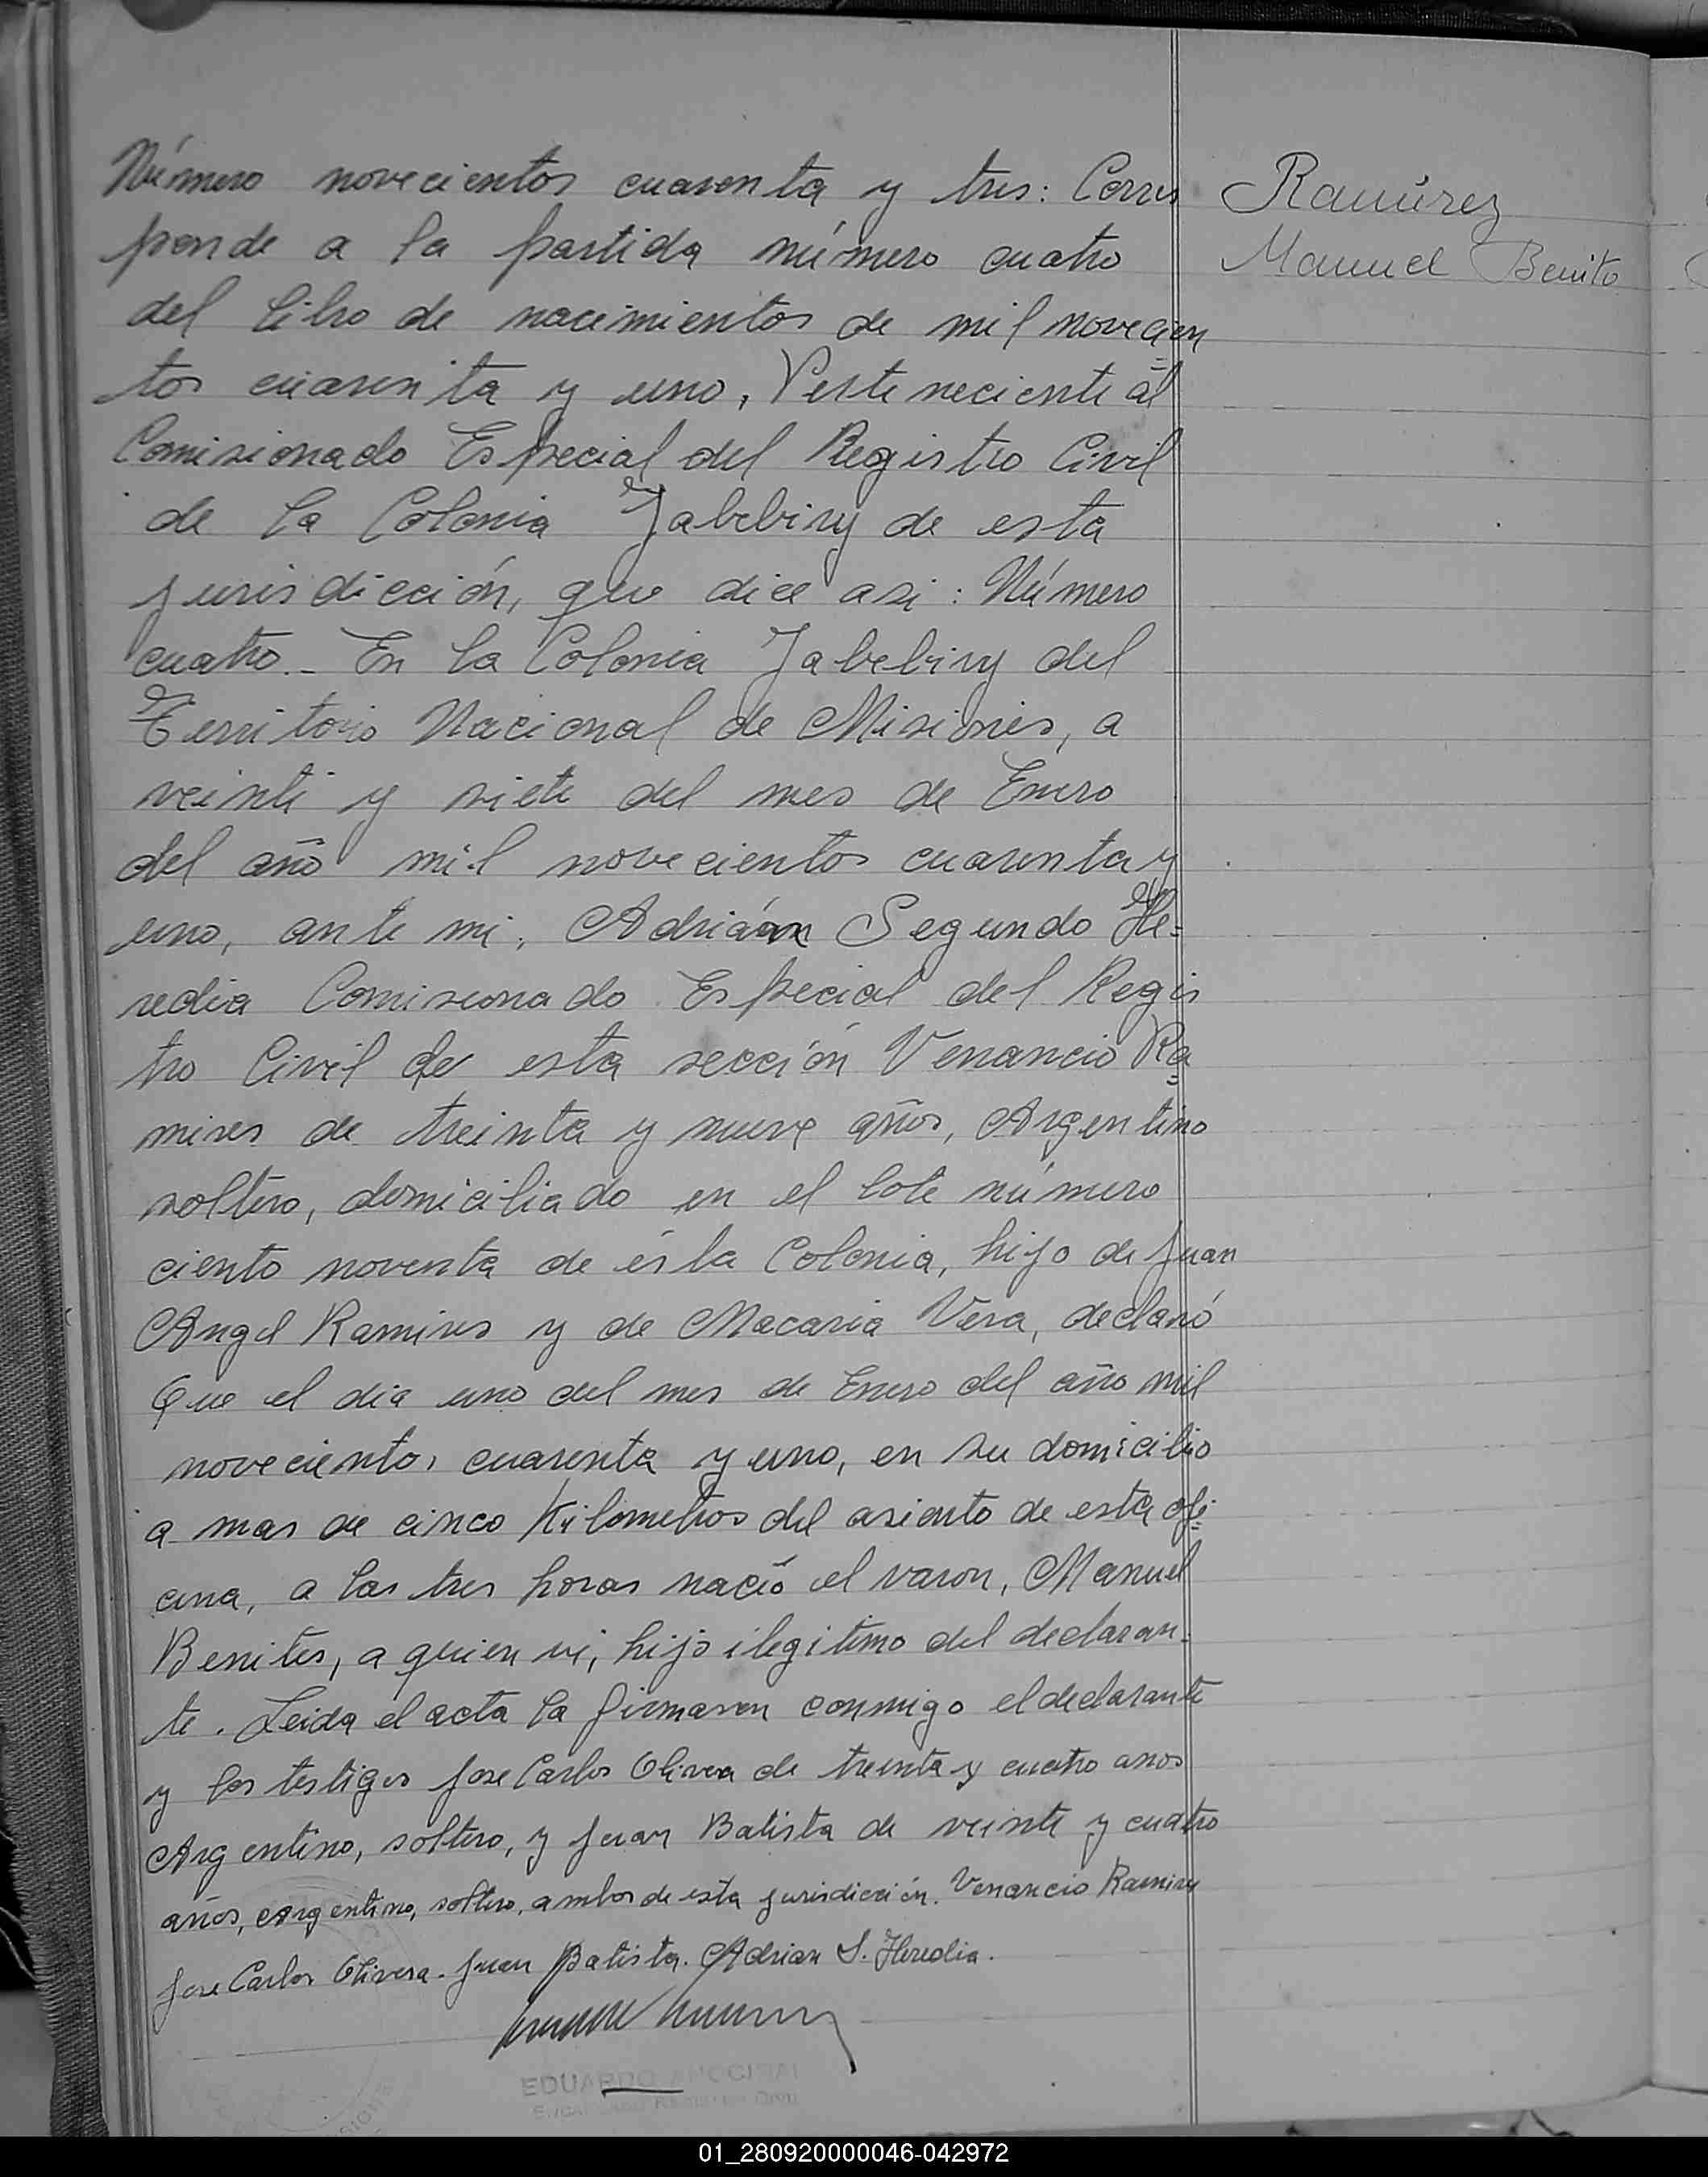 Número novecientos cuarenta y tres: Corres
Ramírez
ponde a la partida número cuatro
Manuel Benito
del libro de nacimientos de mil novecien
tos cuarenta y uno, Perteneciente al
Comisionado Especial del Registro Civil
de la Colonia Yabebiry de esta
jurisdicción, que dice asi: Número
cuatro.- En la Colonia Yabebiry del
Territorio Nacional de Misiones, a
veinti y siete del mes de Enero
del año mil novecientos cuarenta y
uno, ante mi, Adrián Segundo He=
redia Comisionado Especial del Regis
tro Civil de esta sección Venancio Ra=
mires de treinta y nueve años, Argentino
soltero, domiciliado en el lote número
ciento noventa de ésta Colonia, hijo de Juan
Angel Ramires y de Macaria Vera, declaró
Que el dia uno del mes de Enero del año mil
novecientos cuarenta y uno, en su domicilio
a mas de cinco Kilometros del asiento de esta ofi=
cina, a las tres horas nació el varon, Manuel
Benites, a quien vi, hijo ilegitimo del declaran-
te. Leida el acta la firmaron conmigo el declarante
y los testigos Jose Carlos Olivera de treinta y cuatro anos
Argentino, soltero, y Juan Batista de veinte y cuatro
años, Argentino, soltero, ambos de esta jurisdicción. Venancio Ramires
Jose Carlos Olivera. Juan Batista. Adrian S. Heredia.
EDUARDO
01_280920000046-042972